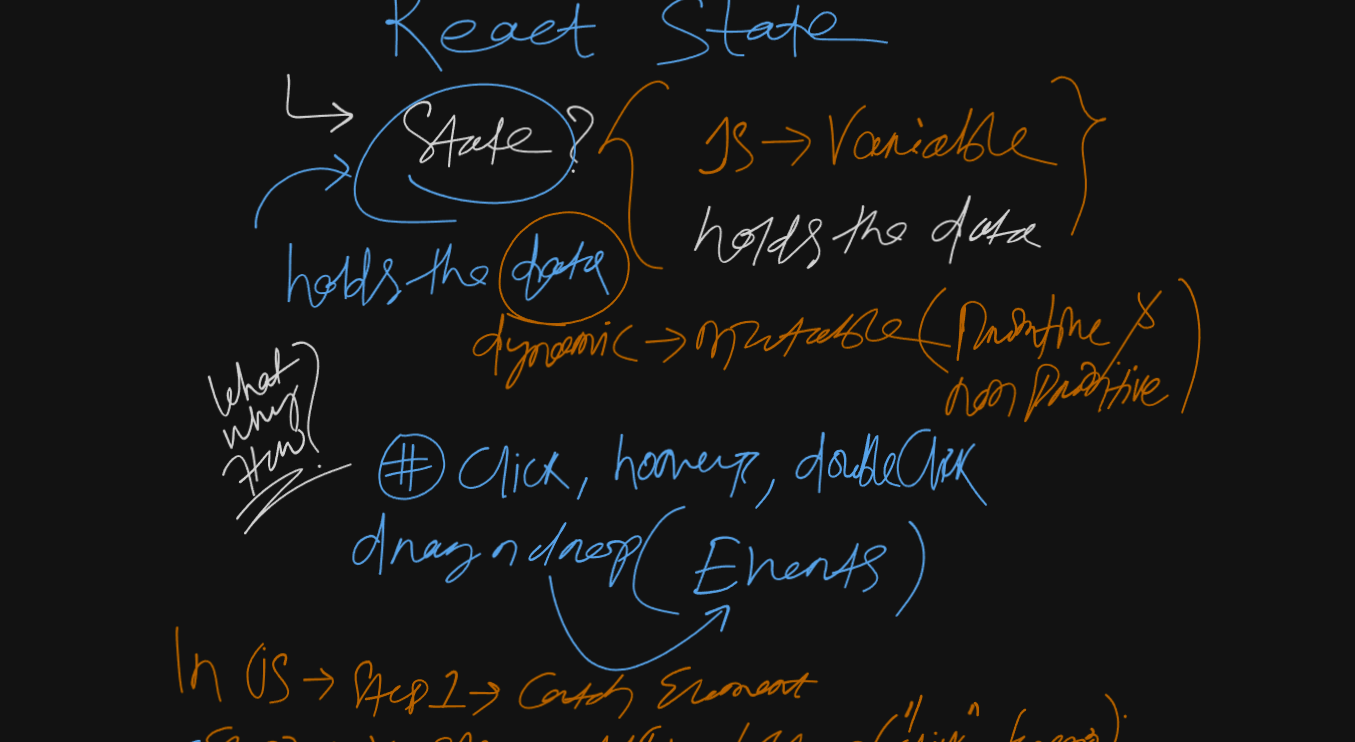 React State
State?
JS → Variable
holds the data
holds the data
dynamic → mutable (Primitive X
non Primitive)
What
why
How?
# Click, hover, doubleClick
drag n drop (Events)
In JS → Step 1 → Catch Element